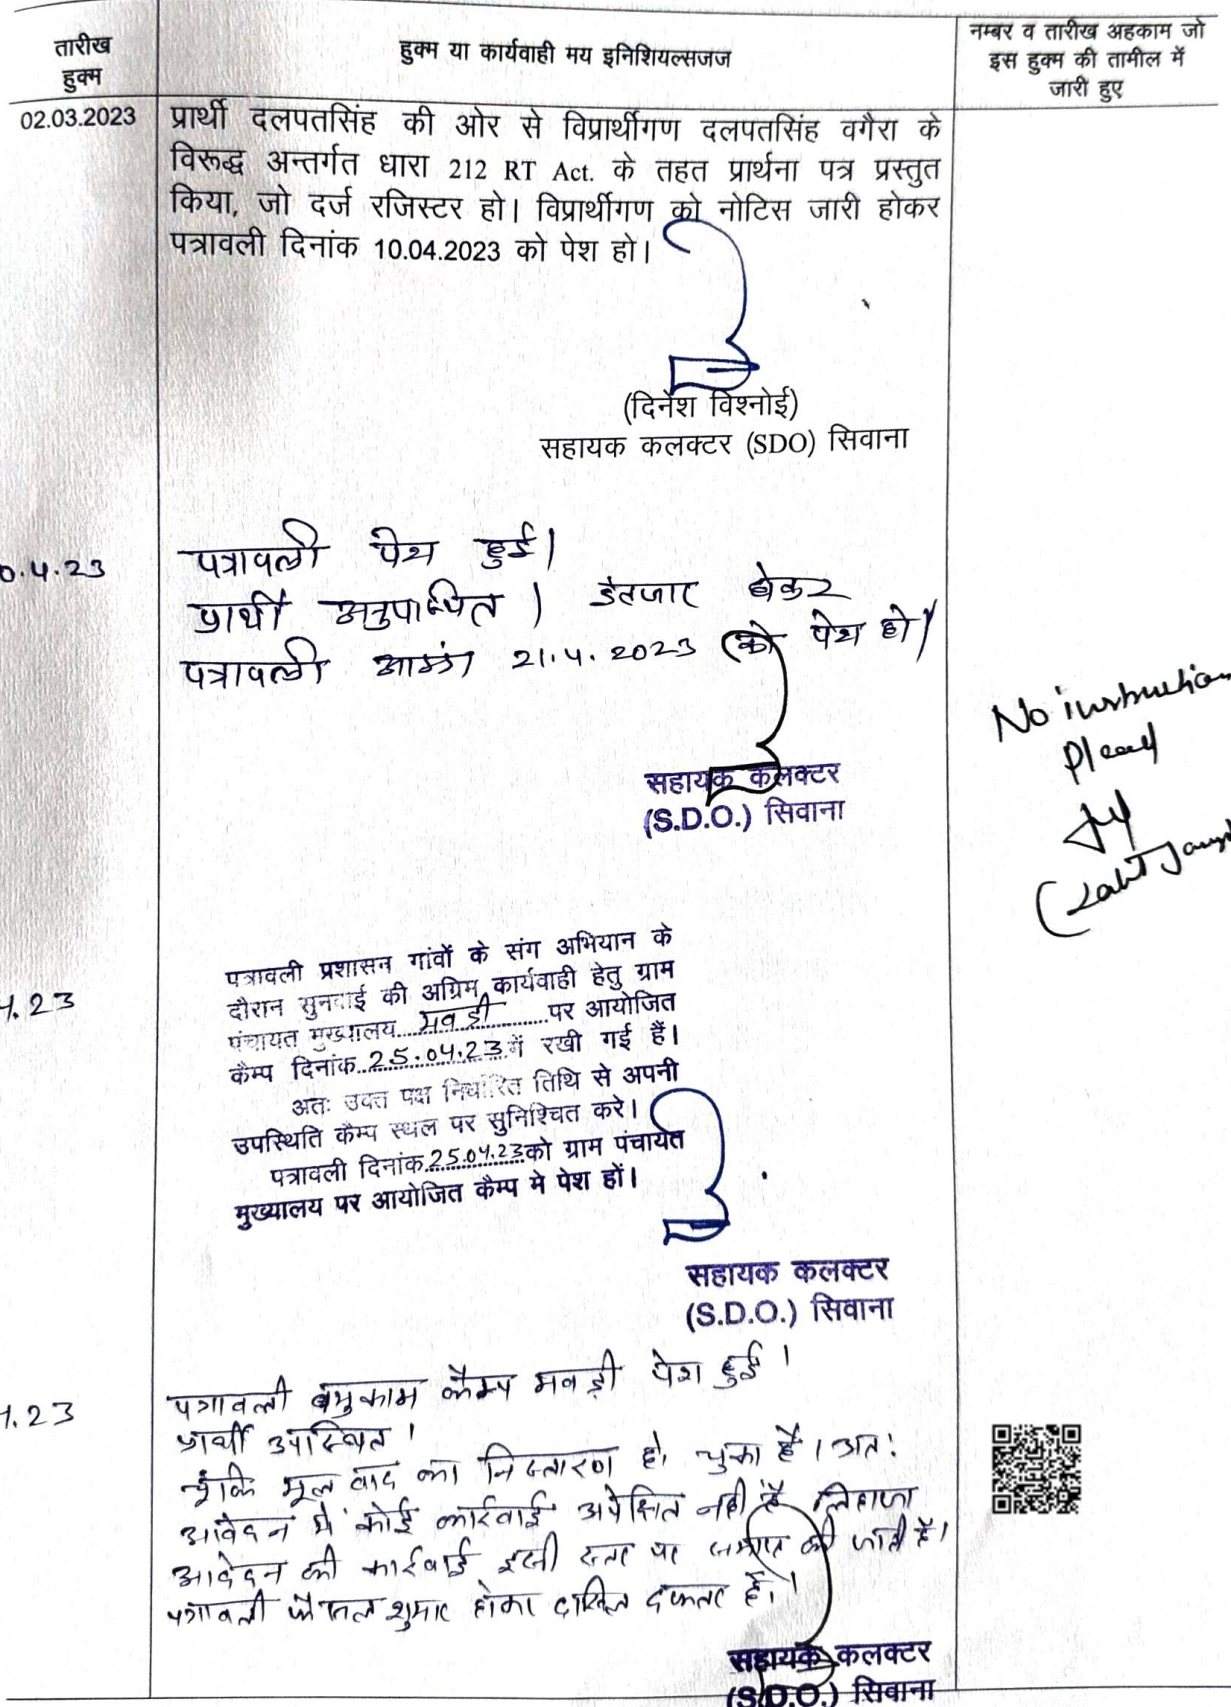 तारीख
हुक्म
हुक्म या कार्यवाही मय इनिशियल्सजज
नम्बर व तारीख अहकाम जो
इस हुक्म की तामील में
जारी हुए
02.03.2023
प्रार्थी दलपतसिंह की ओर से विप्रार्थीगण दलपतसिंह वगैरा के
विरूद्ध अन्तर्गत धारा 212 RT Act. के तहत प्रार्थना पत्र प्रस्तुत
किया, जो दर्ज रजिस्टर हो। विप्रार्थीगण को नोटिस जारी होकर
पत्रावली दिनांक 10.04.2023 को पेश हो।
(दिनेश विश्नोई)
सहायक कलक्टर (SDO) सिवाना
0.4.23
पत्रावली पेश हुई।
प्रार्थी अनुपस्थित। इंतजार होकर
पत्रावली आइंदा 21.4.2023 को पेश हो।
सहायक कलक्टर
(S.D.O.) सिवाना
No instruction
Plead
4.23
पत्रावली प्रशासन गांवों के संग अभियान के
दौरान सुनवाई की अग्रिम कार्यवाही हेतु ग्राम
पंचायत मुख्यालय मवड़ी पर आयोजित
कैम्प दिनांक 25.04.23 में रखी गई हैं।
अतः उक्त पक्ष निर्धारित तिथि से अपनी
उपस्थिति कैम्प स्थल पर सुनिश्चित करे।
पत्रावली दिनांक 25.04.23 को ग्राम पंचायत
मुख्यालय पर आयोजित कैम्प मे पेश हों।
सहायक कलक्टर
(S.D.O.) सिवाना
4.23
पत्रावली बमुकाम कैम्प मवड़ी पेश हुई।
प्रार्थी उपस्थित।
चूंकि मूल वाद का निस्तारण हो चुका है। अतः
आवेदन में कोई कार्रवाई अपेक्षित नहीं है लिहाजा
आवेदन की कार्रवाई इसी स्तर पर समाप्त की जाती है।
पत्रावली फैसल शुमार होकर दाखिल दफ्तर हो।
सहायक कलक्टर
(S.D.O.) सिवाना